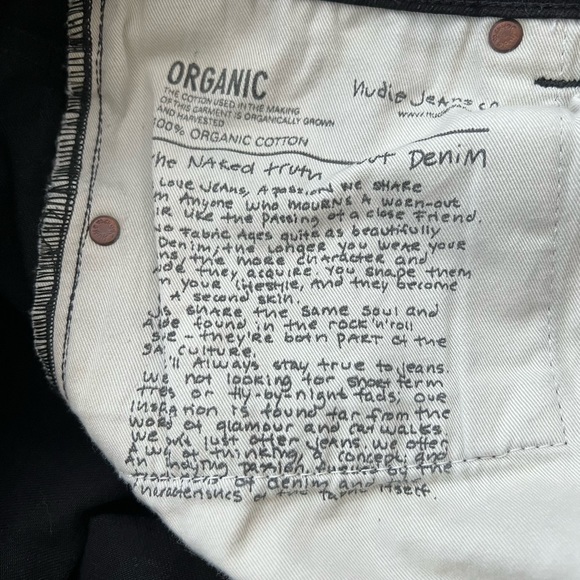 ORGANIC
THE COTTON USED IN THE MAKING
OF THIS GARMENT IS ORGANICALLY GROWN
AND HARVESTED
100% ORGANIC COTTON
Nudie Jeans co
www.nudi
the NAKED truth ut DENIM
Love Jeans, A passion we share
Anyone who mourns A worn-out
IR Like the passing of a close friend.
Fabric Ages quite as beautifully
Denim, the longer you wear your
ns, the more character and
de they acquire. You shape them
n your lifestyle, And they become
A second skin.
s share the same soul and
found in the rock'n'roll
- they're both part of the
culture.
'll Always stay true to jeans.
We not looking for short term
or fly-by-night fads; our
is found far from the
of glamour and catwalks
We just offer jeans, we offer
A of thinking, a concept and
An passion fueled by the
of denim and the
characteristics of the fabric itself.